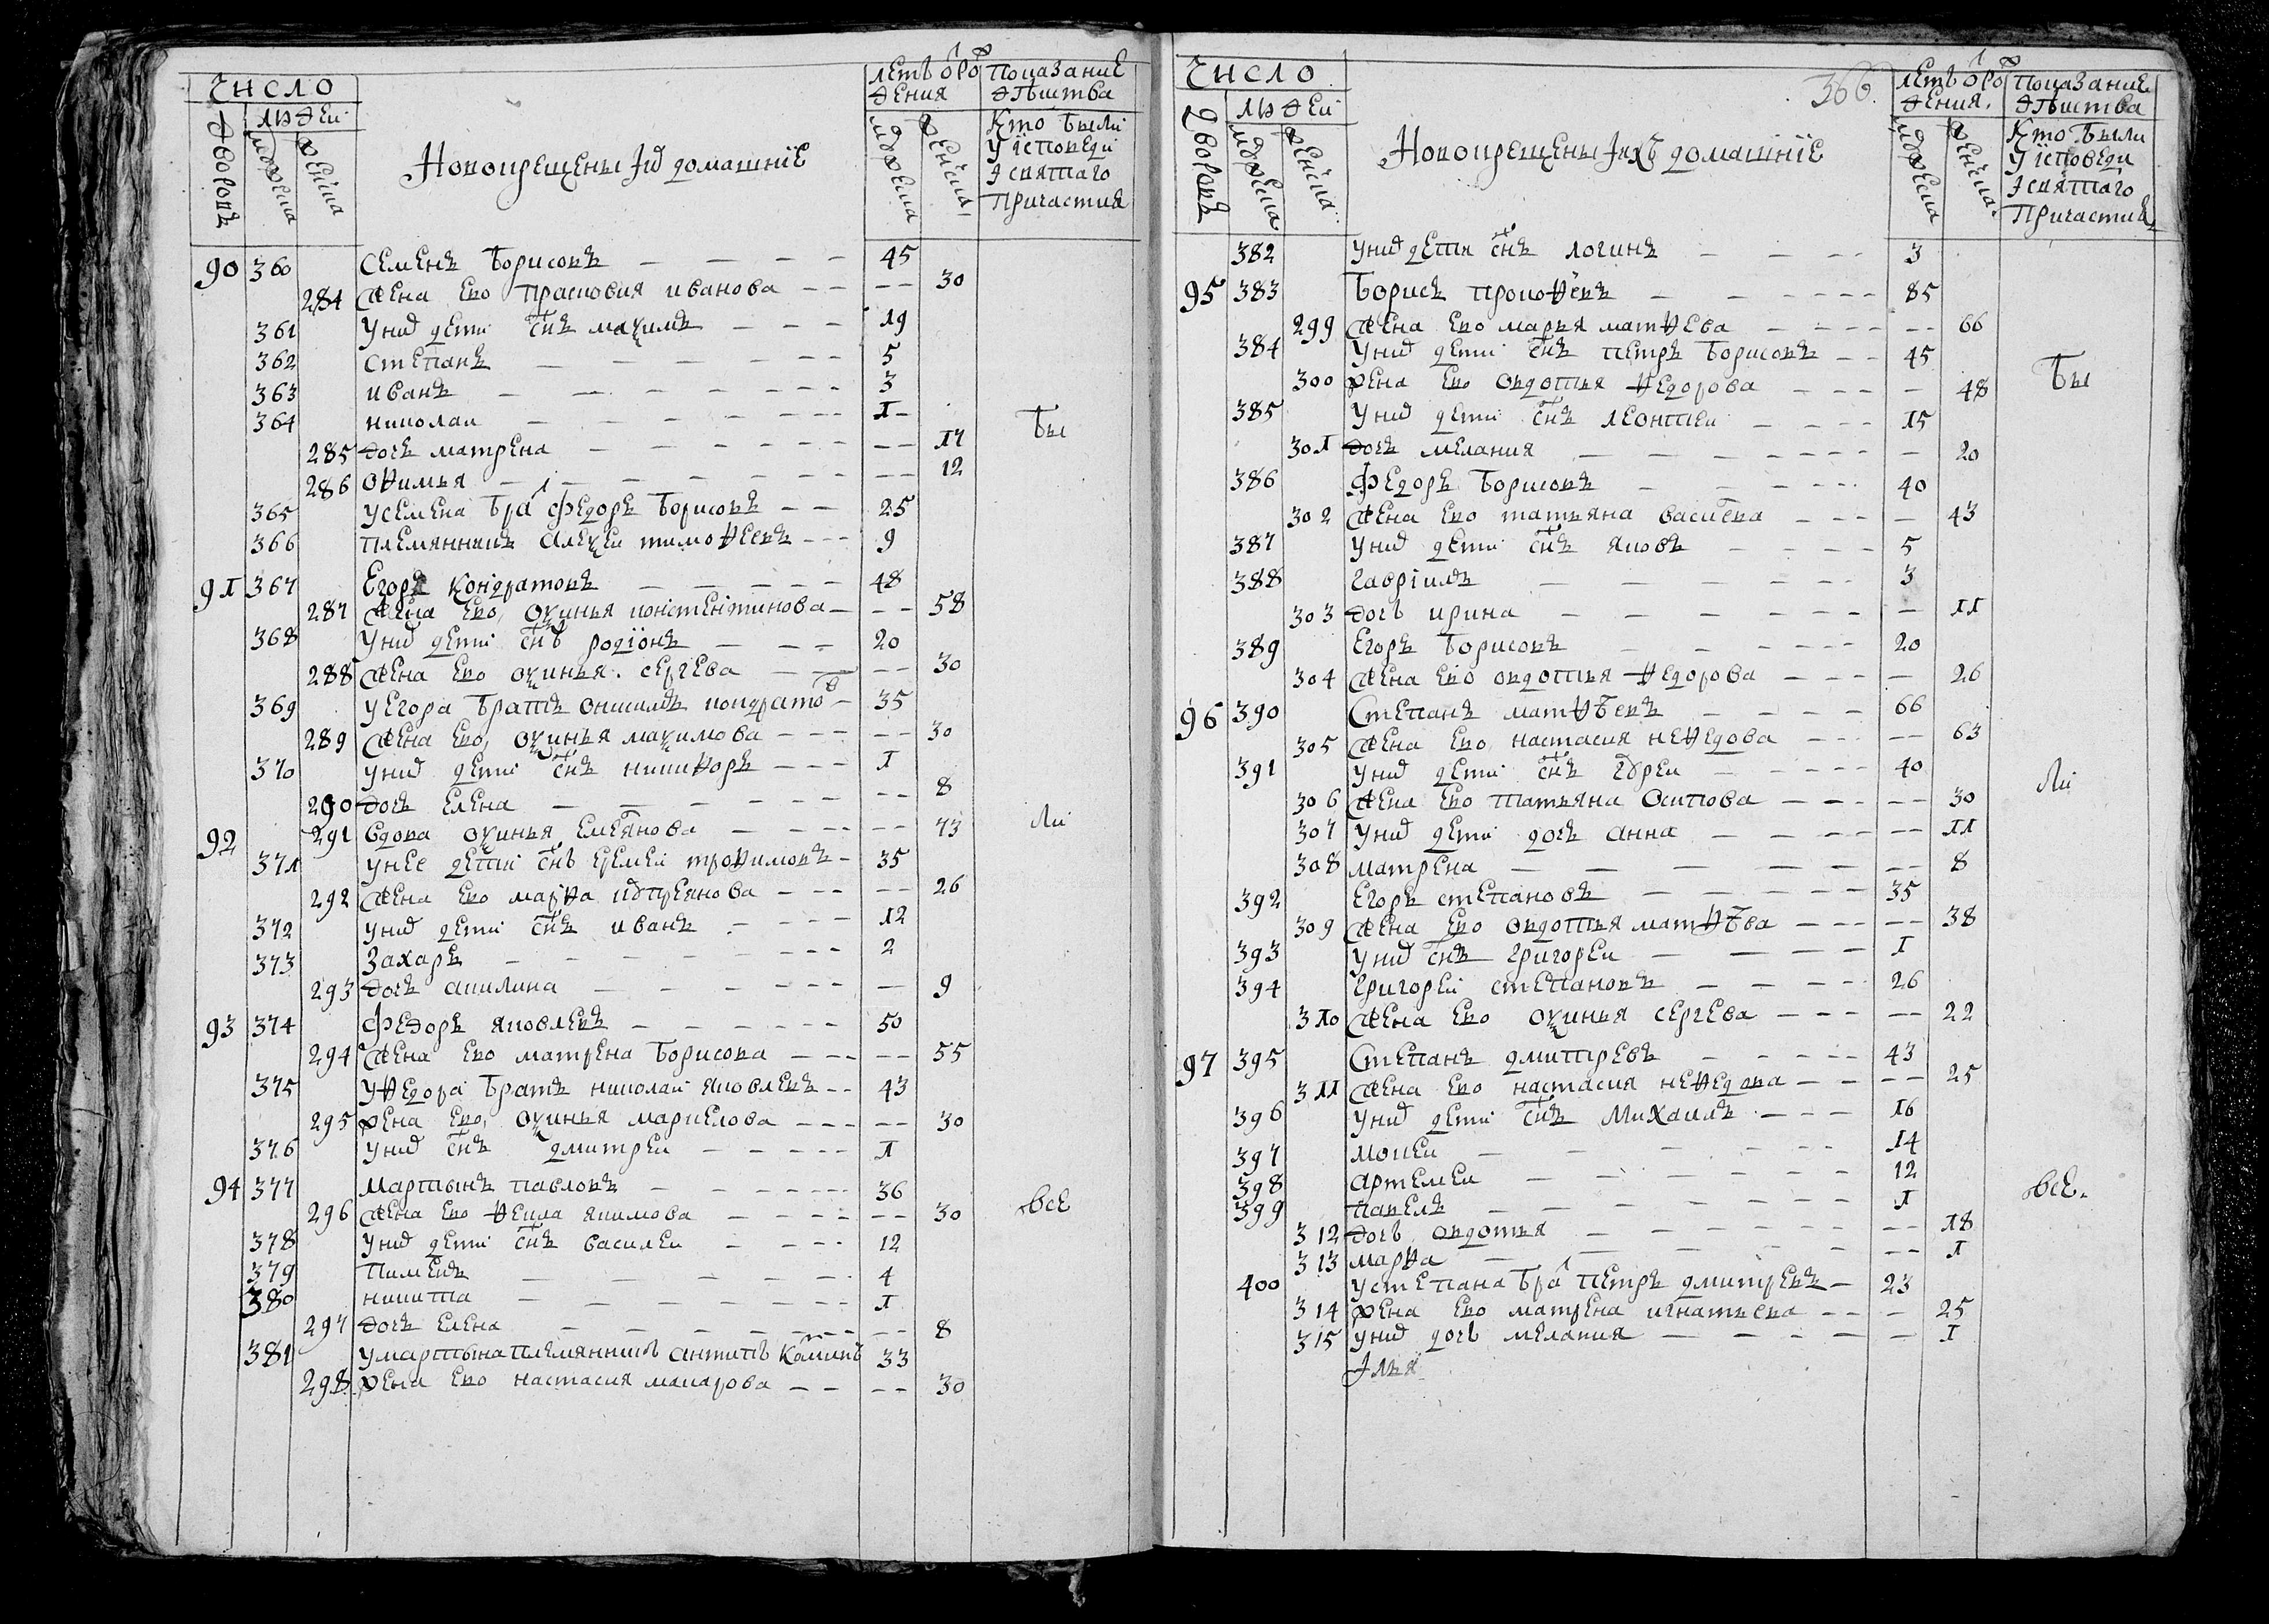 число
людей
дворовъ
мужеска
женска
Новокрещены и их домашние
летъ от рождения
мужеска
женска
Показание действа
Кто были
у исповеди
и святаго
Причастия
90 360 Семенъ Борисовъ 45
284 Жена ево Прасковия иванова 30
361 у них дети снъ маѯимъ 19
362 степанъ 5
363 иванъ 3
364 николаи 1
285 дочь матрена 17
286 офимья 12
365 у семена бра федоръ Борисовъ 25
366 племянникъ алеѯеи тимофеевъ 9
91 367 Егоръ Кондратовъ 48
287 Жена ево оѯинья констентинова 58
368 у них дети снъ родїонъ 20
288 Жена ево оѯинья сергева 30
369 у Егора братъ онисимъ кондратов 35
289 Жена ево оѯинья маѯимова 30
370 у них дети снъ никифоръ 1
290 дочь елена 8
92 291 вдова оѯинья емелянова 73
371 у нее дети снъ еремеи трофимовъ 35
292 Жена ево марфа 26
372 у них дети снъ иванъ 12
373 Захаръ 2
293 дочь акилина 9
93 374 Федоръ яковлевъ 50
294 Жена ево матрена Борисова 55
375 у федора братъ николаи яковлевъ 43
295 жена ево оѯинья маркелова 30
376 у них снъ дмитреи 1
94 377 Мартынъ павловъ 36
296 Жена ево фекла якимова 30
378 у них дети снъ василеи 12
379 Пименъ 4
380 никита 1
297 дочь елена 8
381 у мартына племянникъ антипъ 33
298 жена ево настасия макарова 30
Бы
ли
все
366
число
людей
дворовъ
мужеска
женска
Новокрещены и ихъ домашние
летъ от рождения
мужеска
женска
Показание действа
Кто были
у исповеди
и святаго
Причастия
382 у них детя снъ логинъ 3
95 383 Борисъ прокофевъ 85
299 Жена ево марья матфева 66
384 у них дети снъ петръ Борисовъ 45
300 жена ево овдотья федорова 48
385 у них дети снъ леонтеи 15
301 дочь мелания 20
386 Федоръ Борисовъ 40
302 Жена ево татьяна васиева 43
387 у них дети снъ яковъ 5
388 гаврїилъ 3
303 дочь ирина 11
389 Егоръ Борисовъ 20
304 Жена ево овдотья федорова 26
96 390 Степанъ матфѣевъ 66
305 Жена ево настасия нефедова 63
391 у них дети снъ 40
306 Жена ево татьяна осипова 30
307 у них дети дочь анна 11
308 матрена 8
392 Егоръ степановъ 35
309 Жена ево овдотья матфѣва 38
393 у них снъ григореи 1
394 григореи степановъ 26
310 Жена ево оѯинья сергева 22
97 395 Степанъ дмитревъ 43
311 Жена ево настасия нефедова 25
396 у них дети снъ михаилъ 16
397 мокеи 14
398 артемеи 12
399 павелъ 1
312 дочь овдотья 18
313 марфа 1
400 у степана бра петръ дмитревъ 23
314 жена ево матрена игнатьева 25
315 у них дочь мелания 1
Бы
ли
все.